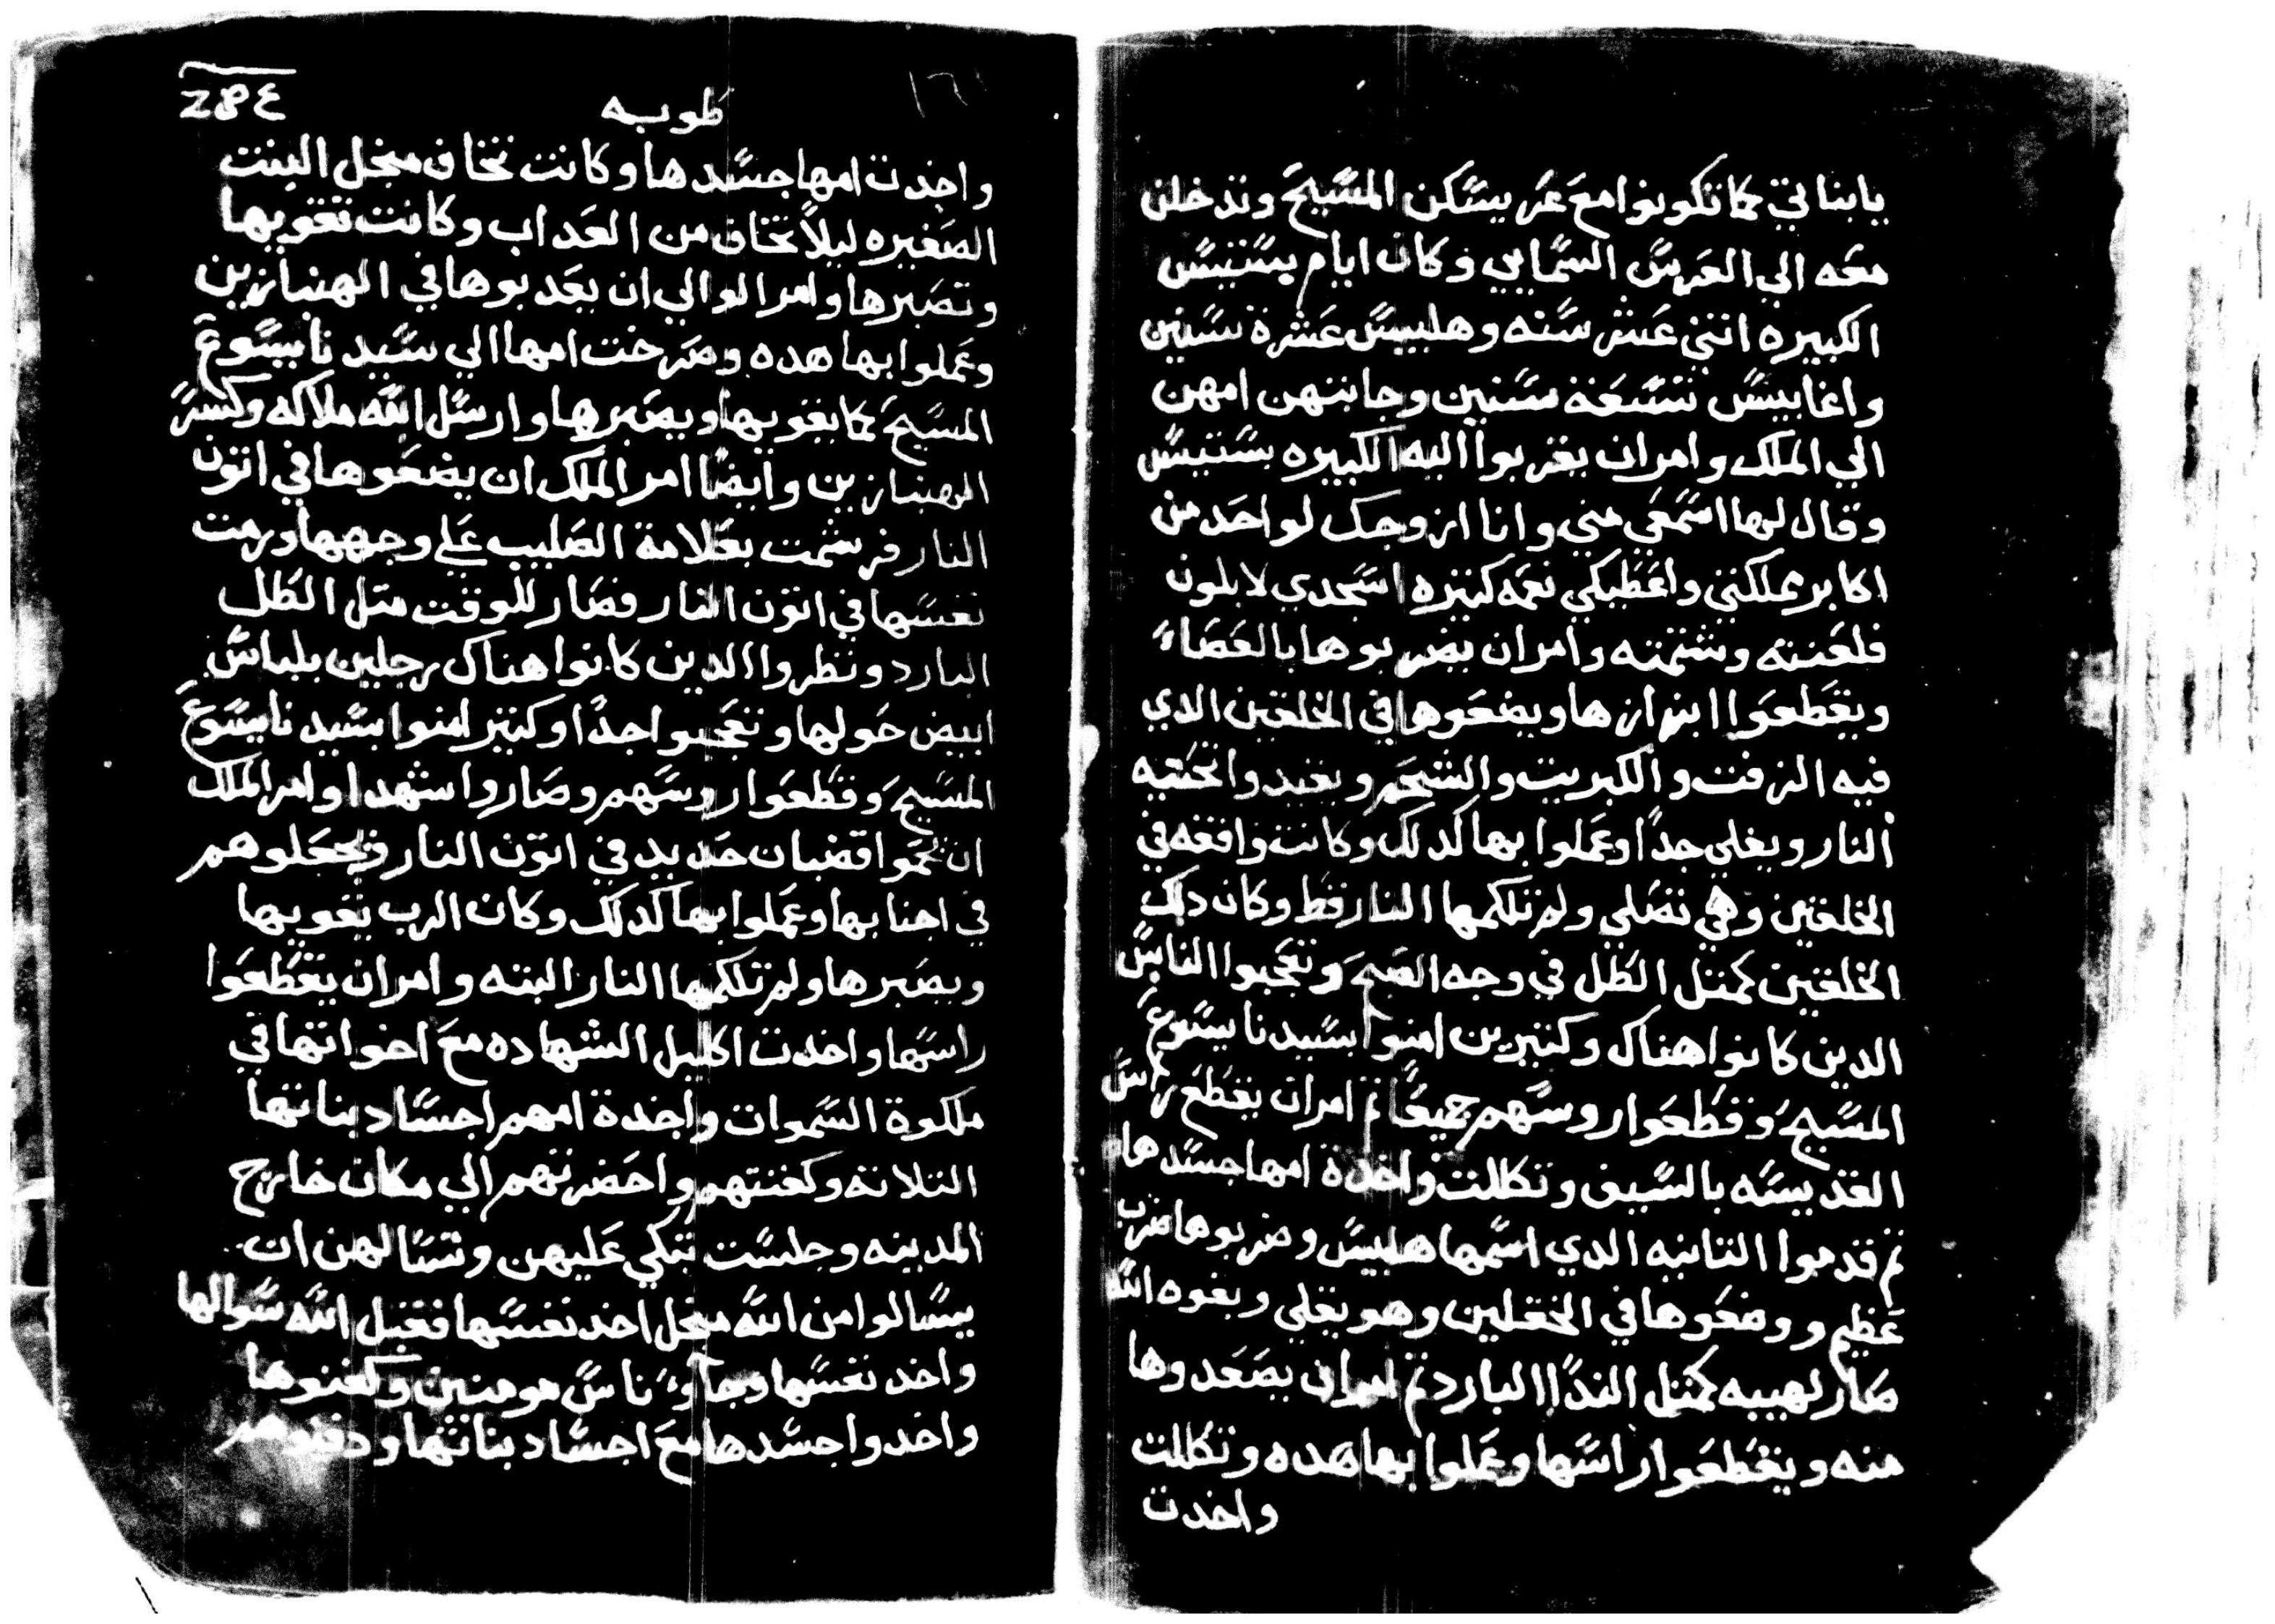 يابناتي كما تكونوا مع عريسكن المسيح وتدخلن
معه الي العرس السمايي وكان ايام بستيس
الكبيره اتني عشر سنه وهلبيس عشرة سنين
واغابيس تسعة سنين وجابتهن امهن
الي الملك وامر ان يقربوا اليه الكبيره بستيس
وقال لها اسمعي مني وانا ازوجك لواحد من
اكابر مملكتي واعطيكي نعمه كتيره اسجدي لابلون
فلعنته وشتمته وامر ان يضربوها بالعصاء
ويقطعوا ابزازها ويضعوها في الخلقين الدي
فيه الزفت والكبريت والشحم ويقيدوا تحتيه
النار ويغلي جداً وعملوا بها كدلك وكانت واقفه في
الخلقين وهي تصلي ولم تلكمها النار قط وكان دلك
الخلقين كمتل الطل في وجه الصبح وتعجبوا الناس
الدين كانوا هناك وكتيرين امنوا بسيدنا يسوع
المسيح وقطعوا روسهم جميعاً تم امر ان يقطع راس
القديسه بالسيف وتكللت واخدة امها جسدها
تم قدموا التانيه الدي اسمها هلبيس وضربوها ضرب
عظيم ووضعوها في الخقلين وهو يغلي وبقوه الله
صار لهيبه كمتل الندا البارد تم امر ان يصعدوها
منه ويقطعوا راسها وعملوا بها هده وتكللت
واخدت
طوبه
واخدت امها جسدها وكانت تخاف منجل البنت
الصغيره ليلاً تخاف من العداب وكانت تقويها
وتصبرها وامر الوالي ان يعدبوها في الهنبازين
وعملوا بها هده وصرخت امها الي سيدنا يسوع
المسيح كما يقويها ويصبرها وارسل الله ملاكه وكسر
الهنبازين وايضاً امر الملك ان يضعوها في اتون
النار فرشمت بعلامة الصليب علي وجهها ورمت
نفسها في اتون النار فصار للوقت متل الطل
البارد ونظروا الدين كانوا هناك رجلين بلباس
ابيض حولها وتعجبوا جداً وكتير امنوا بسيدنا يسوع
المسيح وقطعوا روسهم وصاروا شهدا وامر الملك
ان يحموا قضبان حديد في اتون النار ويجعلوهم
في اجنابها وعملوا بها كدلك وكان الرب يقويها
ويصبرها ولم تلكمها النار البته وامر ان يقطعوا
راسها واخدت اكليل الشهاده مع اخواتها في
ملكوة السموات واخدة امهم اجساد بناتها
التلاته وكفنتهم واحضرتهم الي مكان خارج
المدينه وجلست تبكي عليهن وتسالهن ان
يسالوا من الله منجل اخد نفسها فقبل الله سوالها
واخد نفسها وجآوُ ناس مومنين وكفنوها
واخدوا جسدها مع اجساد بناتها ودفنوهم